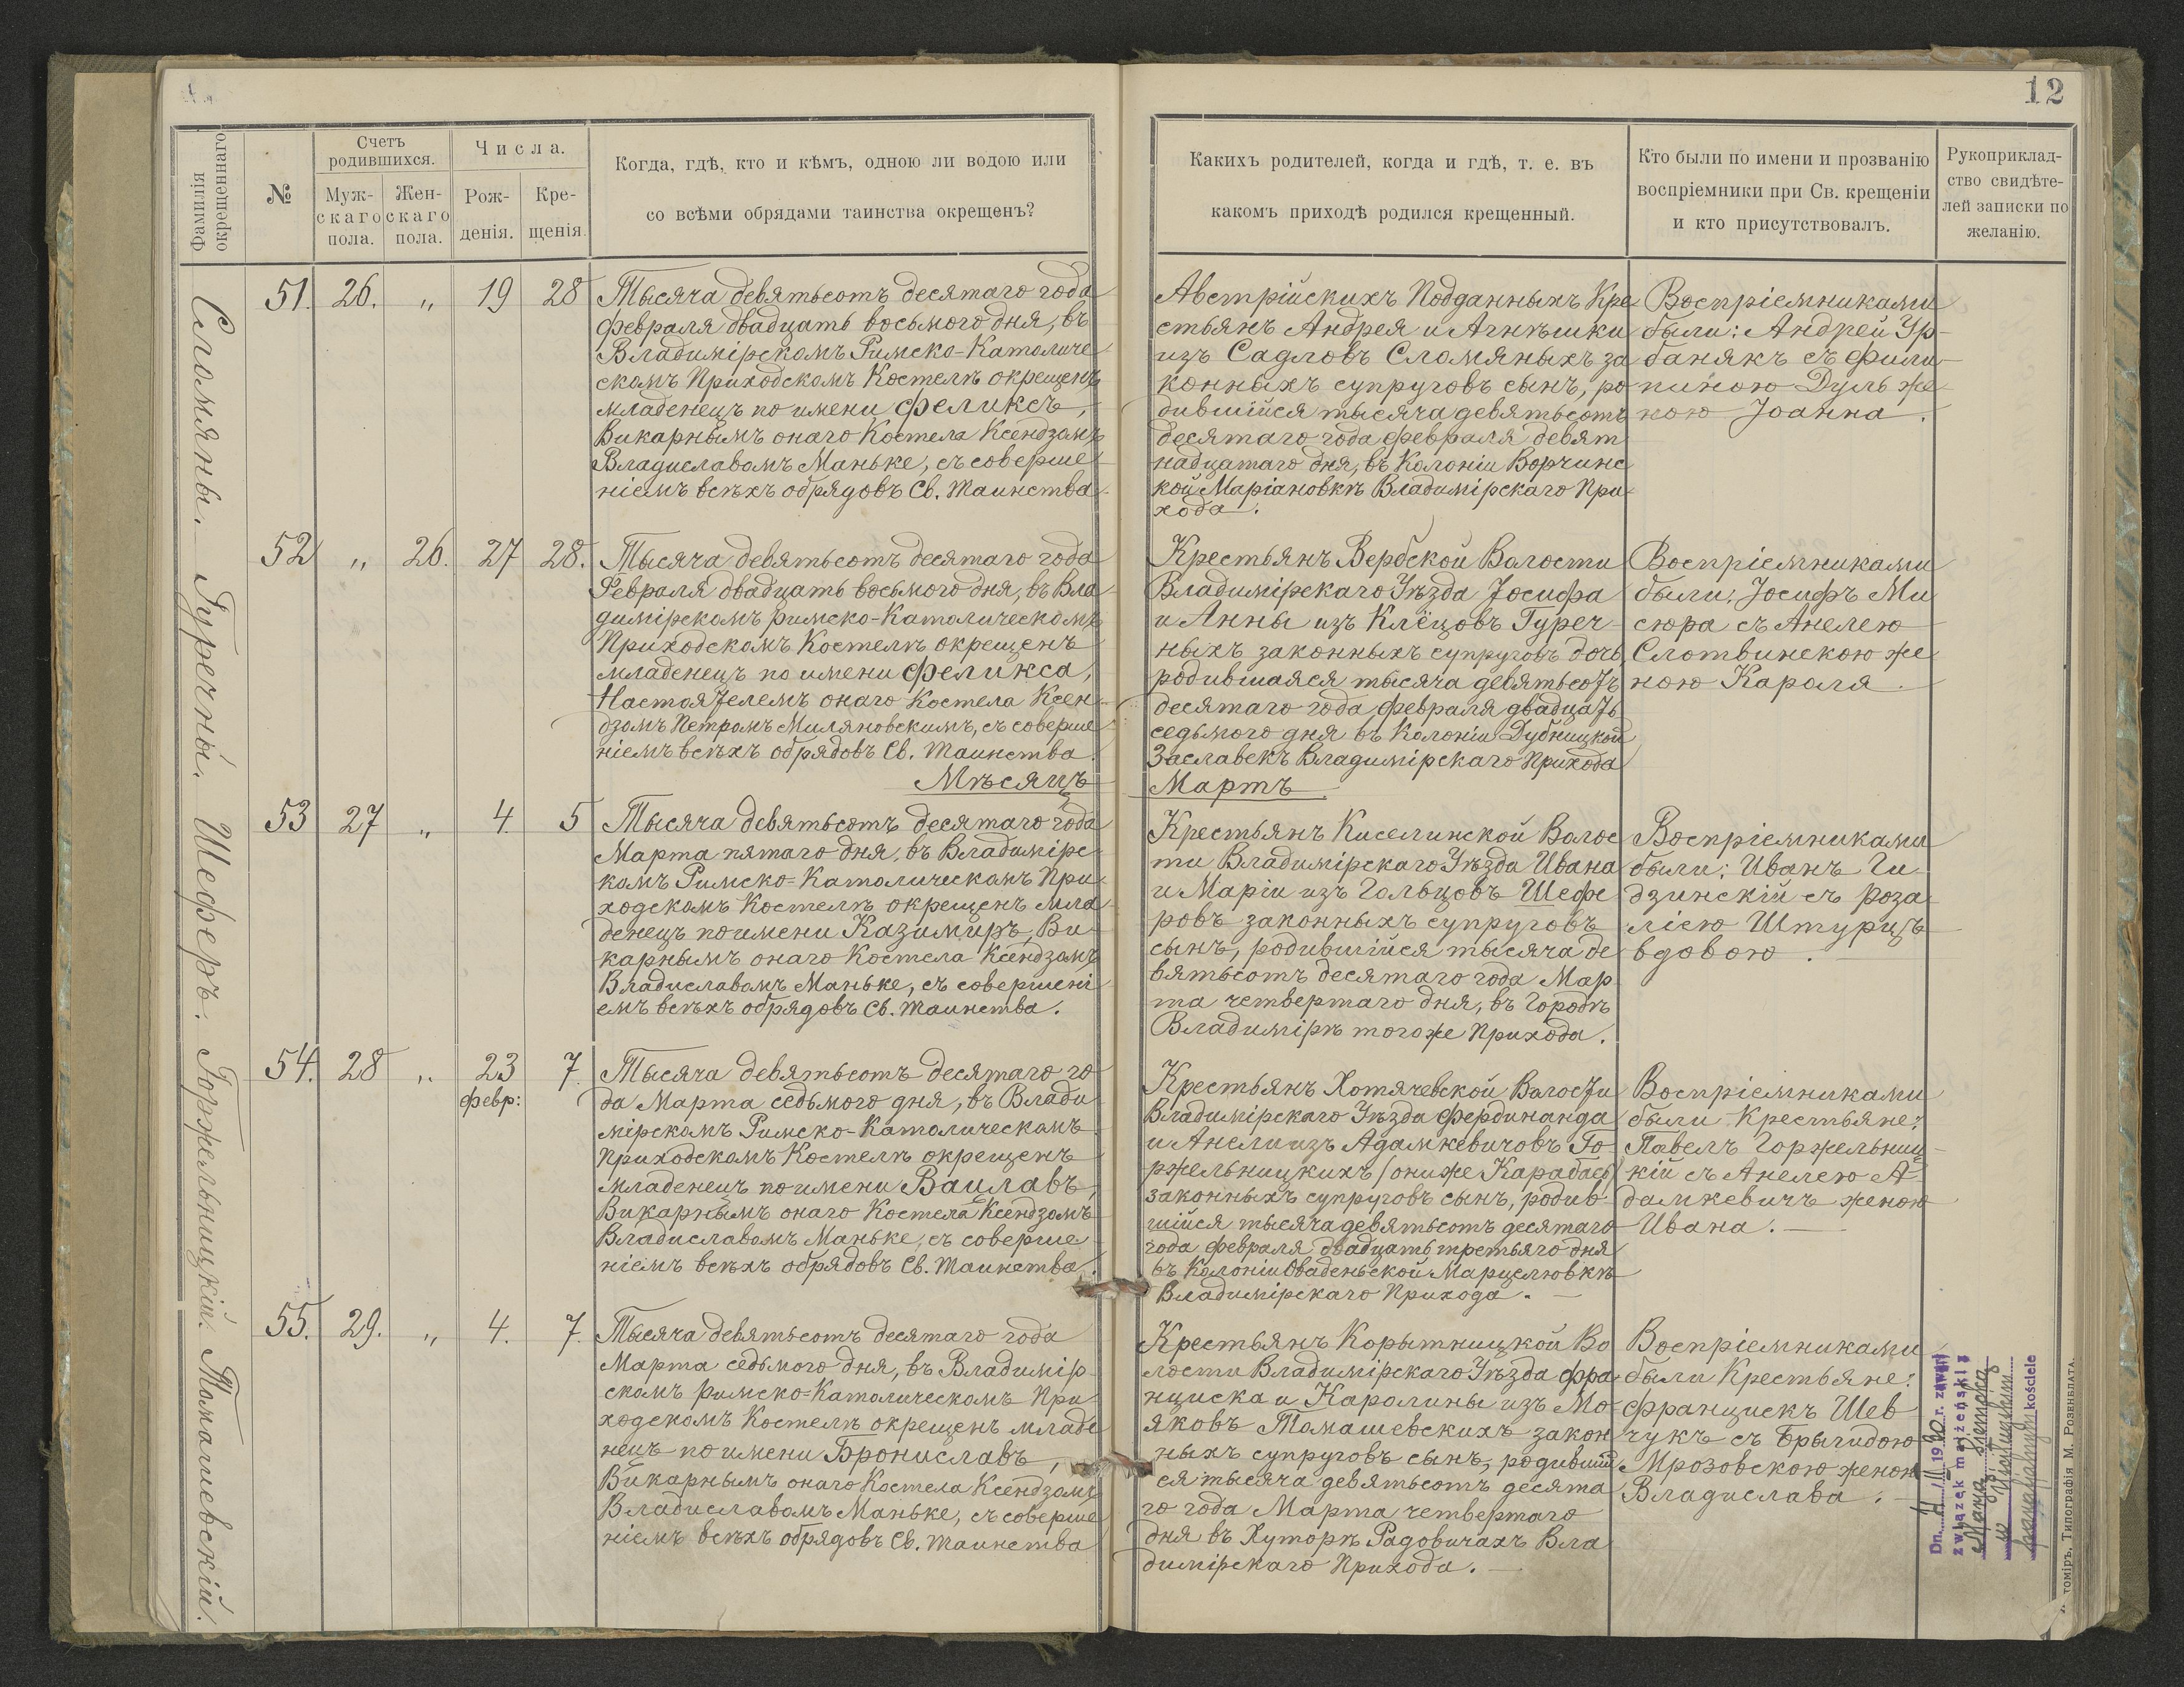 12
Фамилія окрещеннаго
№
Счетъ родившихся.
Мужскаго пола.
Женскаго пола.
Числа.
Рожденія.
Крещенія.
Когда, гдѣ, кто и кѣмъ, одною ли водою или
со всѣми обрядами таинства окрещенъ?
Какихъ родителей, когда и гдѣ, т. е. въ
какомъ приходѣ родился крещенный.
Кто были по имени и прозванію
воспріемники при Св. крещеніи
и кто присутствовалъ.
Рукоприклад-
ство свидѣте-
лей записки по
желанію.
Сломяны.
51. 26. „ 19 28
Тысяча девятьсотъ десятаго года
февраля двадцать восьмого дня, въ
Владимірскомъ Римско-Католиче
скомъ Приходскомъ Костелѣ окрещенъ
младенецъ по имени Феликсъ,
Викарнымъ онаго Костела Ксендзомъ
Владиславомъ Маньке, съ соверше
ніемъ всѣхъ обрядовъ Св. Таинства.
Австрійскихъ Подданныхъ Кре
стьянъ Андрея и Агнѣшки
изъ Садловъ Сломяныхъ за
конныхъ супруговъ сынъ, ро
дившійся тысяча девятьсотъ
десятаго года февраля девят
надцатаго дня, въ Колоніи Ворчинс
кой Маріановкѣ Владимірскаго При
хода.
Воспріемниками
были: Андрей Ур-
банякъ съ Фили-
пиною Дуль же
ною Іоанна.
Гуречны.
52 „ 26. 27 28.
Тысяча девятьсотъ десятаго года
Февраля двадцать восьмого дня, въ Вла
димірскомъ Римско-Католическомъ
Приходскомъ Костелѣ окрещенъ
младенецъ по имени Феликса,
Настоятелемъ онаго Костела Ксен-
дзомъ Петромъ Миляновскимъ, съ соверше
ніемъ всѣхъ обрядовъ Св. Таинства.
Крестьянъ Вербской Волости
Владимірскаго Уѣзда Іосифа
и Анны изъ Клёцовъ Гуреч-
ныхъ законныхъ супруговъ дочь,
родившаяся тысяча девятьсотъ
десятаго года февраля двадцать
седьмого дня въ Колоніи Дубницкой
Заславекъ Владимірскаго Прихода
Воспріемниками
были: Іосифъ Ми
сюра съ Анелею
Слотвинскою же
ною Кароля.
Мѣсяцъ Мартъ
Шеферъ.
53 27 „ 4. 5
Тысяча девятьсотъ десятаго года
Марта пятаго дня, въ Владимірс
комъ Римско-Католическомъ При
ходскомъ Костелѣ окрещенъ мла
денецъ по имени Казимиръ, Ви
карнымъ онаго Костела Ксендзомъ
Владиславомъ Маньке, съ совершені
емъ всѣхъ обрядовъ Св. Таинства.
Крестьянъ Киселинской Волос
ти Владимірскаго Уѣзда Ивана
и Маріи изъ Гольцовъ Шефе
ровъ законныхъ супруговъ
сынъ, родившійся тысяча де
вятьсотъ десятаго года Мар
та четвертаго дня, въ Городѣ
Владимірѣ того же Прихода.
Воспріемниками
были: Иванъ Ги
дзинскій съ Роза
ліею Штурцъ
вдовою.
Горжельницкій.
54. 28 „ 23 февр: 7.
Тысяча девятьсотъ десятаго го
да Марта седьмого дня, въ Влади
мірскомъ Римско-Католическомъ
Приходскомъ Костелѣ окрещенъ
младенецъ по имени Вацлавъ,
Викарнымъ онаго Костела Ксендзомъ
Владиславомъ Маньке, съ соверше
ніемъ всѣхъ обрядовъ Св. Таинства.
Крестьянъ Хотячевской Волости
Владимірскаго Уѣзда Фердинанда
и Анели изъ Адамкевичовъ Го
ржельницкихъ (они же Карабаев)
законныхъ супруговъ сынъ, родив-
шійся тысяча девятьсотъ десятаго
года февраля двадцать третьяго дня
въ Колоніи Оваденьской Марцелювкѣ
Владимірскаго Прихода.
Воспріемниками
были Крестьяне:
Павелъ Горжельниц-
кій съ Анелею А-
дамкевичъ женою
Ивана.
Томашевскій.
55. 29. „ 4. 7.
Тысяча девятьсотъ десятаго года
Марта седьмого дня, въ Владимір
скомъ Римско-Католическомъ При
ходскомъ Костелѣ окрещенъ младе
нецъ по имени Брониславъ,
Викарнымъ онаго Костела Ксендзомъ
Владиславомъ Маньке, съ соверше
ніемъ всѣхъ обрядовъ Св. Таинства
Крестьянъ Корытницкой Во
лости Владимірскаго Уѣзда Фра
нциска и Каролины изъ Мо
яковъ Томашевскихъ закон
ныхъ супруговъ сынъ, родивший
ся тысяча девятьсотъ десята
го года Марта четвертаго
дня въ Хуторѣ Радовичахъ Вла
димірскаго Прихода.
Воспріемниками
были Крестьяне:
Францискъ Шев
чукъ съ Брыгидою
Мрозовскою женою
Владислава.
Dn. 19 r. zawarł
związek małżeński z
Marją
w
parafjalnym kościele
томіръ, Типографія М. Розенблата.